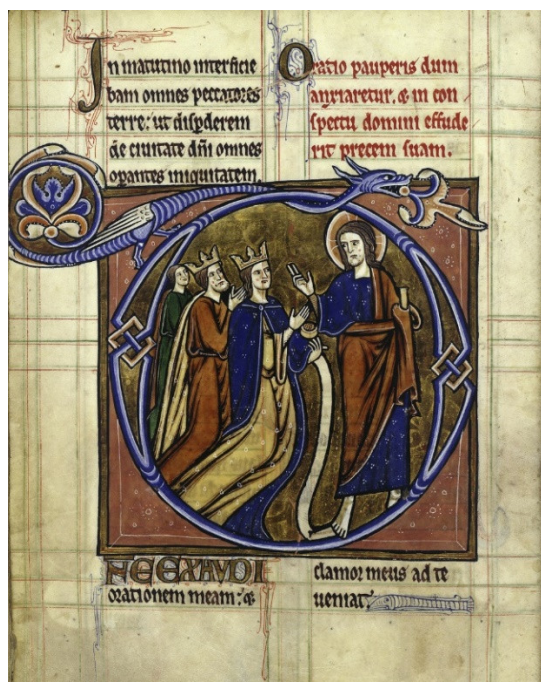 In matutino interficie
bam omnes peccatores
terre: ut disꝑderem
de ciuitate dñi omnes
oꝑantes iniquitatem.
Oratio pauperis dum
anxiaretur. & in con
spectu domini effude
rit precem suam.
DNE EXAVDI
orationem meam: &
clamor meus ad te
ueniat